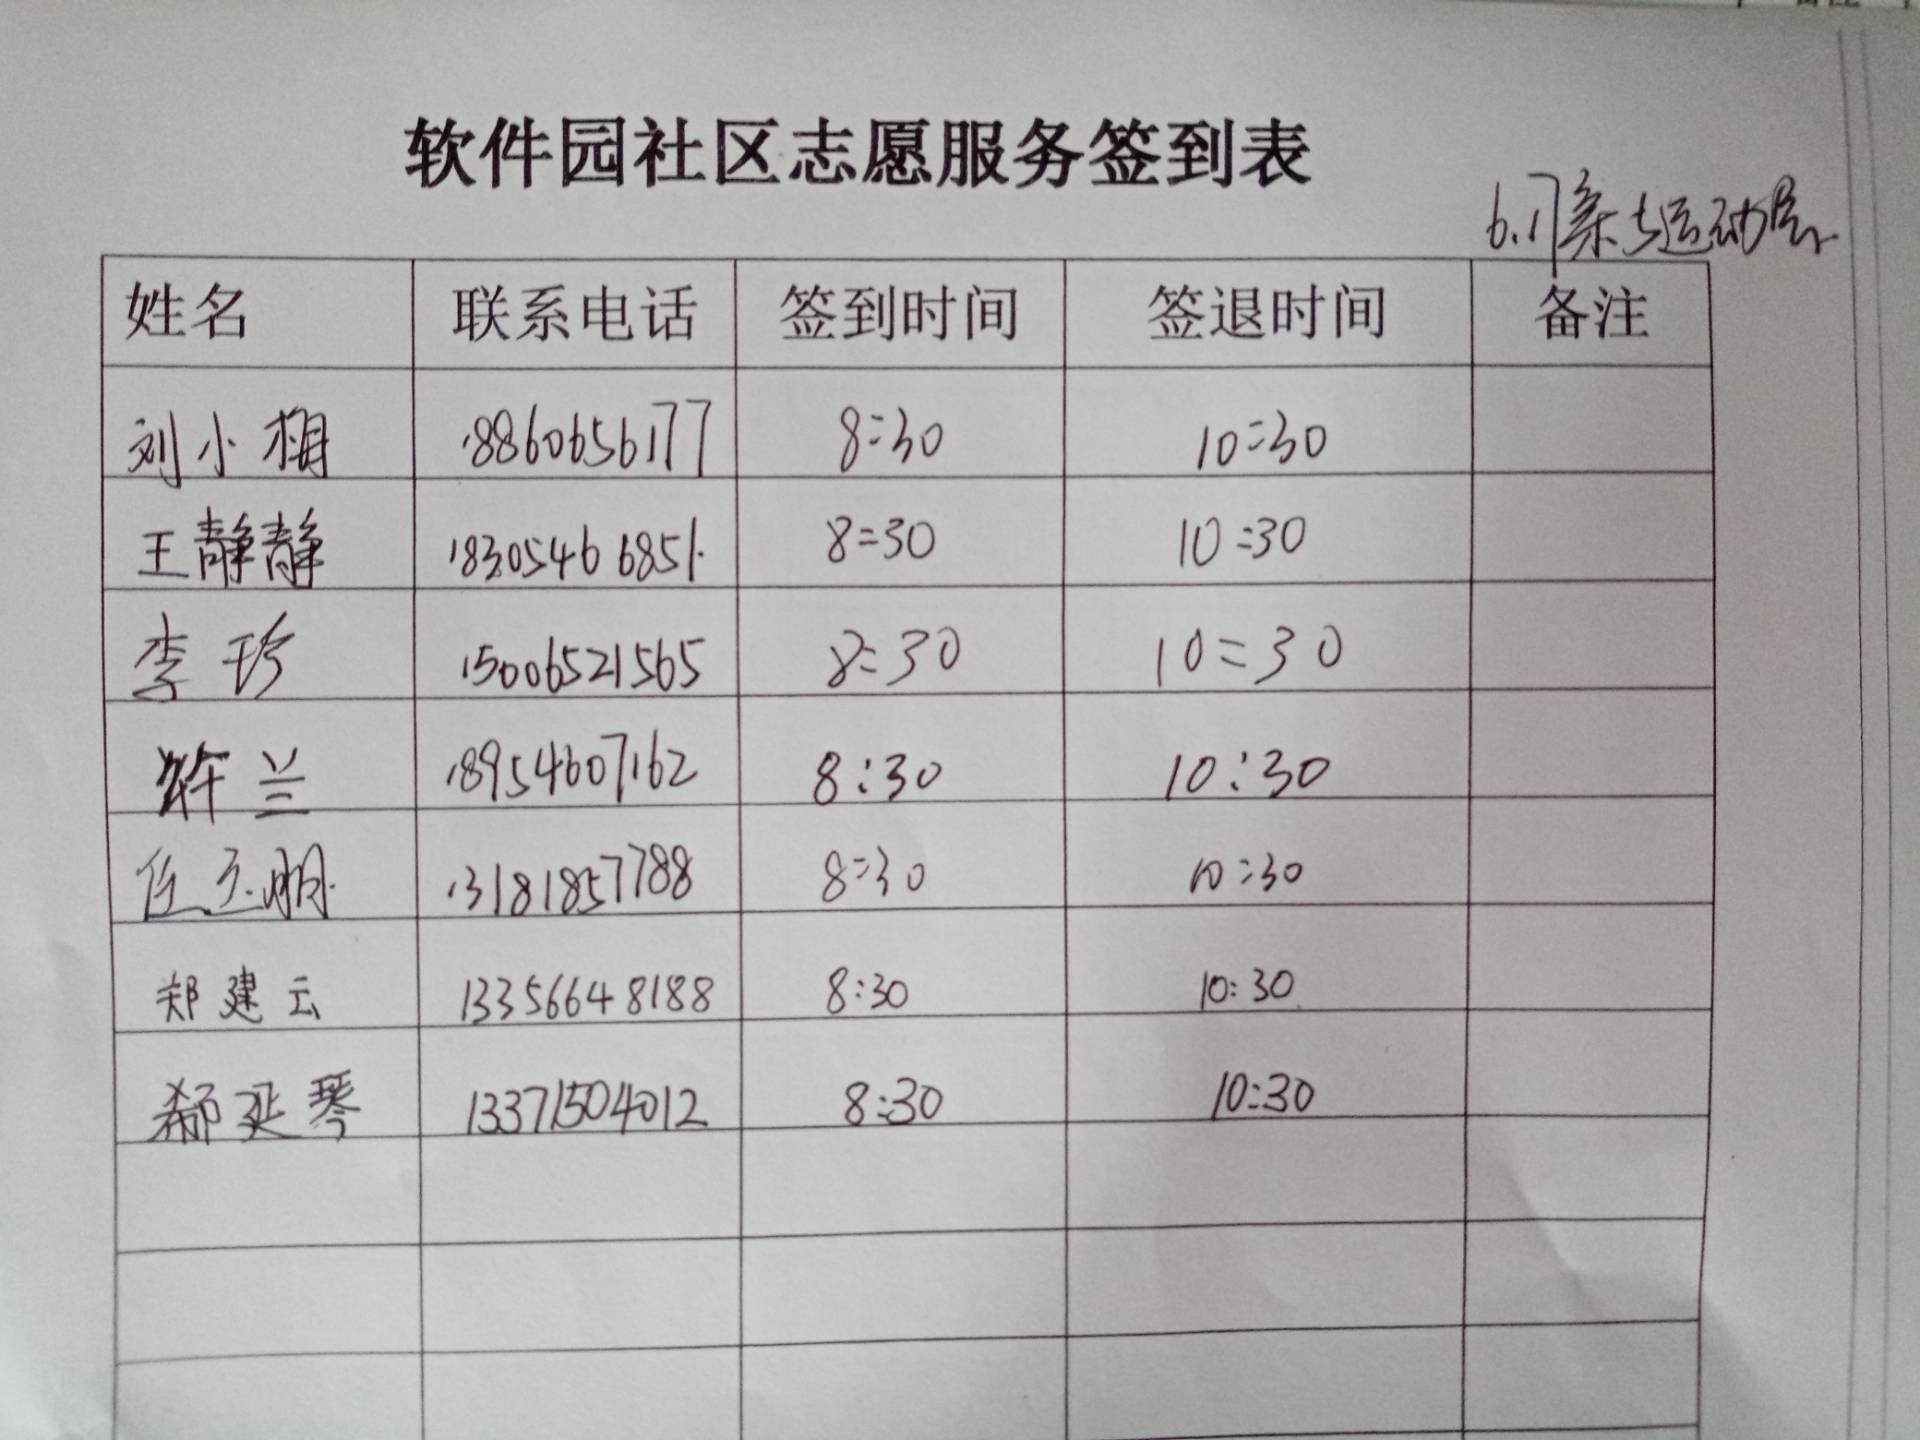 软件园社区志愿服务签到表
6.17亲子运动会
姓名 联系电话 签到时间 签退时间 备注
刘小梅 18860656177 8:30 10:30
王静静 18305466851 8:30 10:30
李珍 15006521565 8:30 10:30
兰 18954607162 8:30 10:30
任 明 13181857788 8:30 10:30
郑建云 13356648188 8:30 10:30
郗延琴 13371504012 8:30 10:30